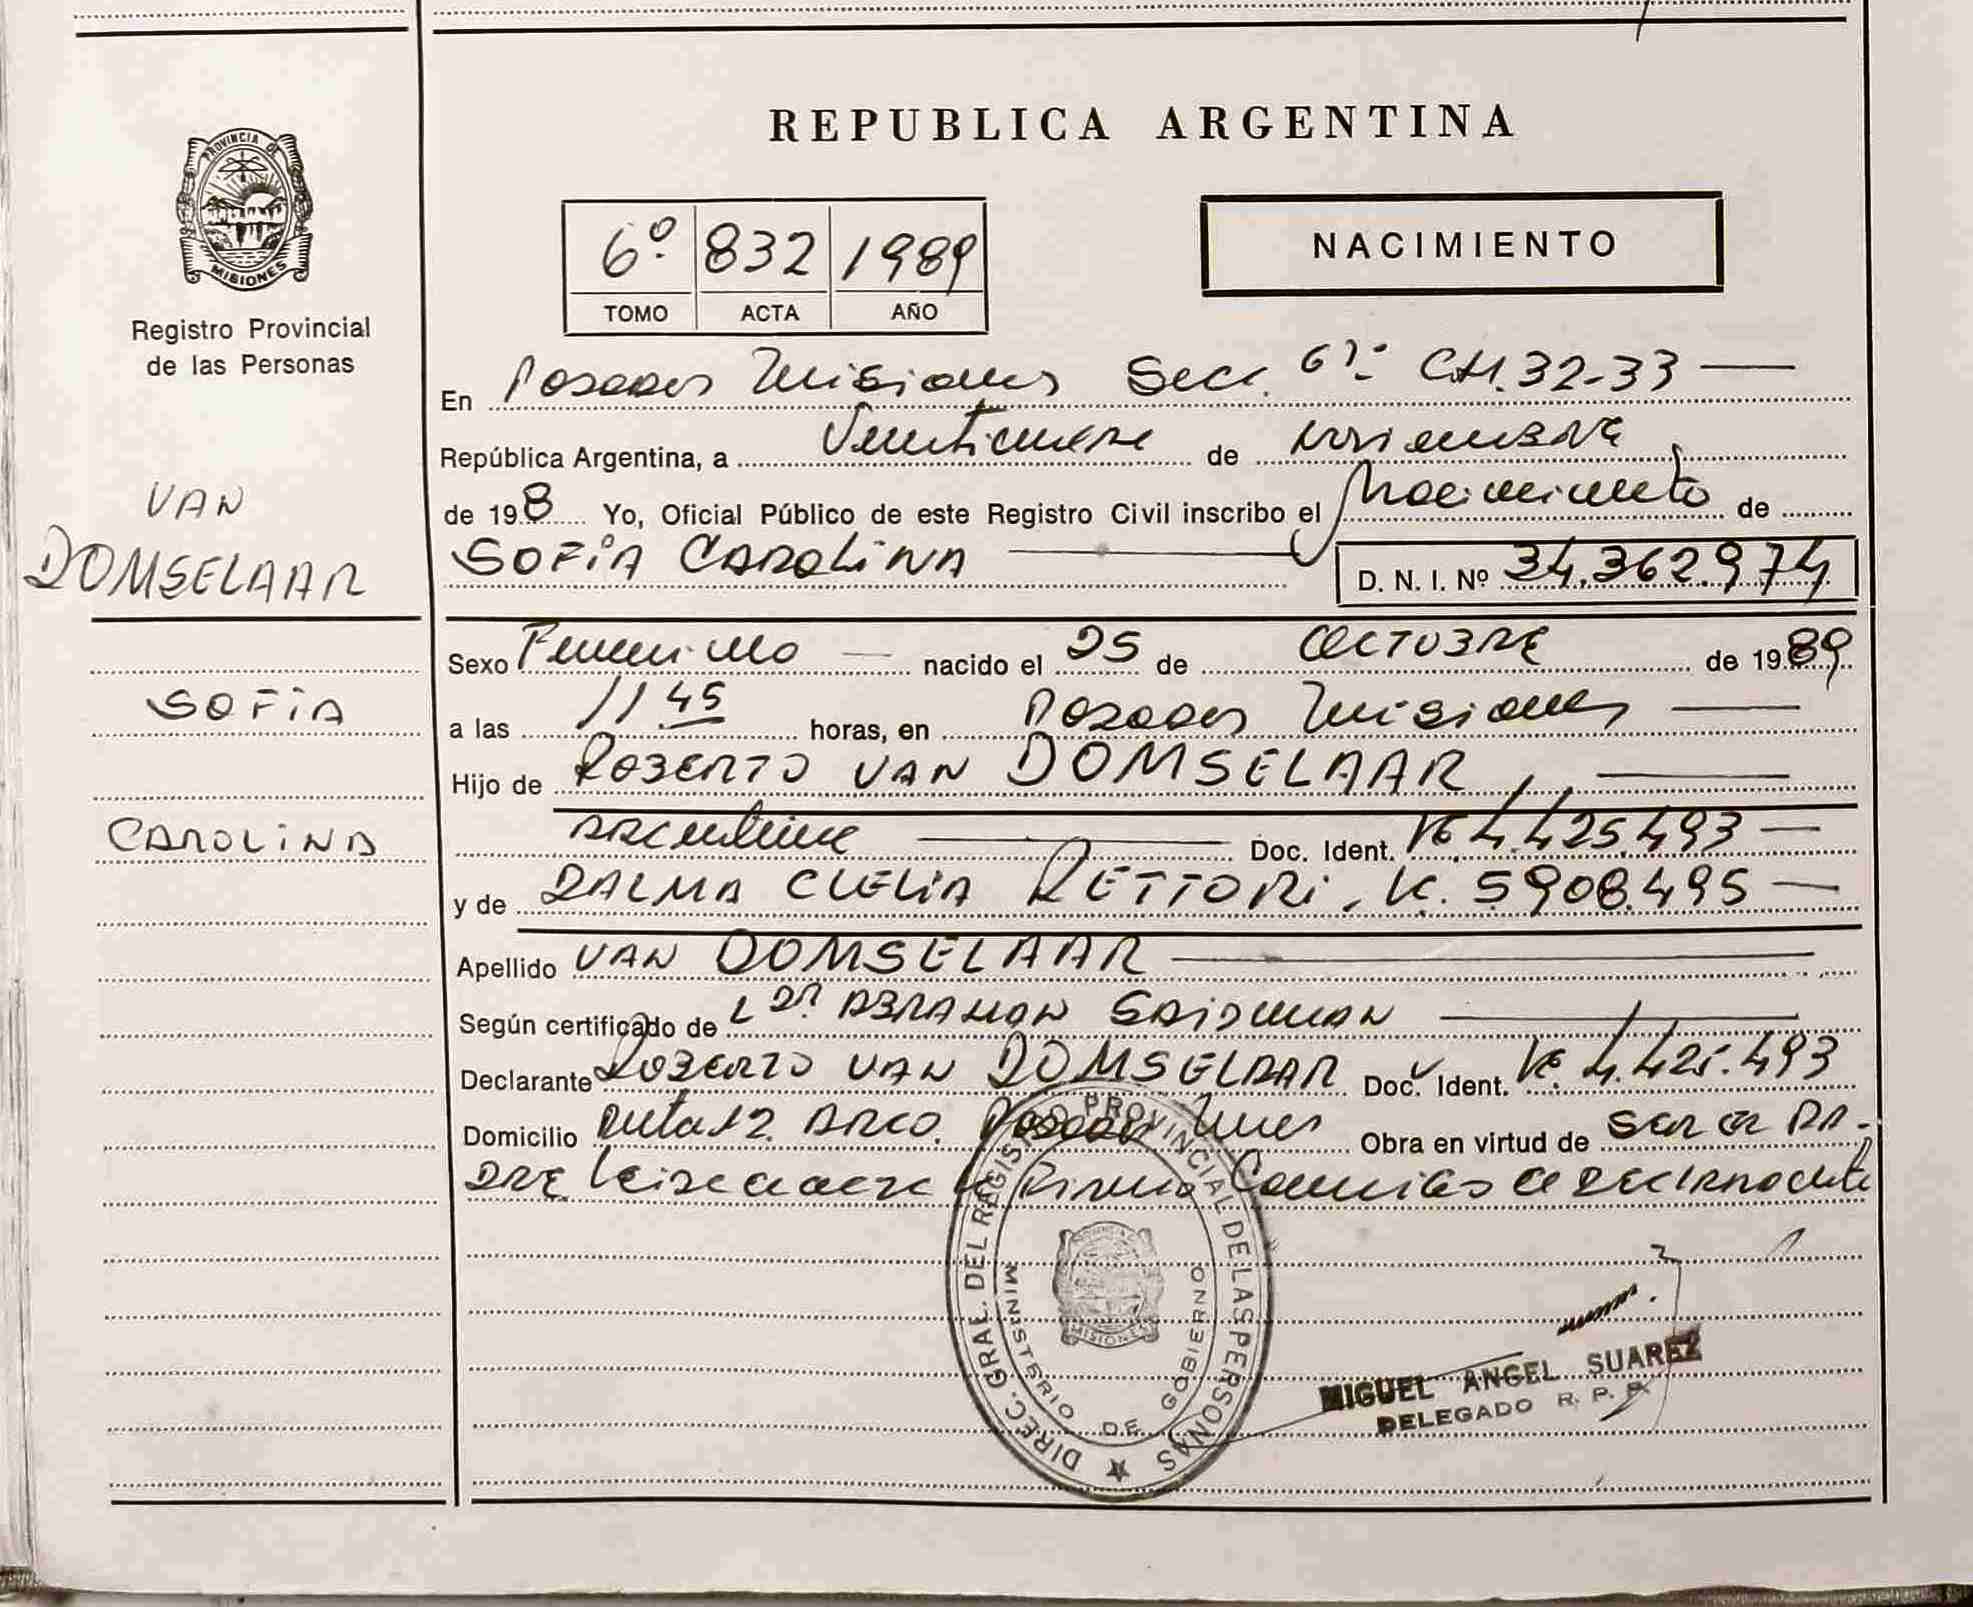 PROVINCIA DE
MISIONES
Registro Provincial
de las Personas
VAN
DOMSELAAR
SOFÍA
CAROLINA
REPUBLICA ARGENTINA
6º 832 1989
TOMO ACTA AÑO
NACIMIENTO
En Posadas Misiones Secc. 6ª CH. 32-33
República Argentina, a de noviembre
de 198 Yo, Oficial Público de este Registro Civil inscribo el Nacimiento de
SOFÍA CAROLINA D. N. I. Nº 34.362.974
Sexo Femenino nacido el 25 de OCTUBRE de 1989
a las 11 45 horas, en Posadas Misiones
Hijo de ROBERTO VAN DOMSELAAR,
argentino Doc. Ident. 4.425.493
y de DALMA CLELIA RETTORI, 5908.495
Apellido VAN DOMSELAAR
Según certificado de Dr. ABRAHAN SAIDMAN
Declarante ROBERTO VAN DOMSELAAR Doc. Ident. 4.425.493
Domicilio Ruta 12. ARCO. Posadas Mnes Obra en virtud de SER EL PA-
DRE Firma el DECLARANTE
DIREC. GRAL. DEL REGISTRO PROVINCIAL DE LAS PERSONAS
MINISTERIO DE GOBIERNO
MISIONES
MIGUEL ANGEL SUAREZ
DELEGADO R. P. P.